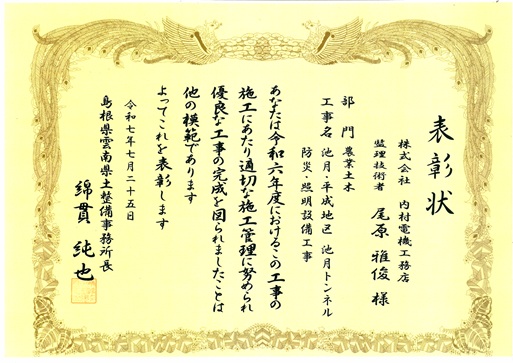 表彰状
株式会社 内村電機工務店
監理技術者 尾原雅俊様
部門 農業土木
工事名 池月・平成地区 池月トンネル
防災・照明設備工事
あなたは令和六年度におけるこの工事の
施工にあたり適切な施工管理に努められ
優良な工事の完成を図られましたことは
他の模範であります
よってこれを表彰します
令和七年七月二十五日
島根県雲南県土整備事務所長
綿貫純也